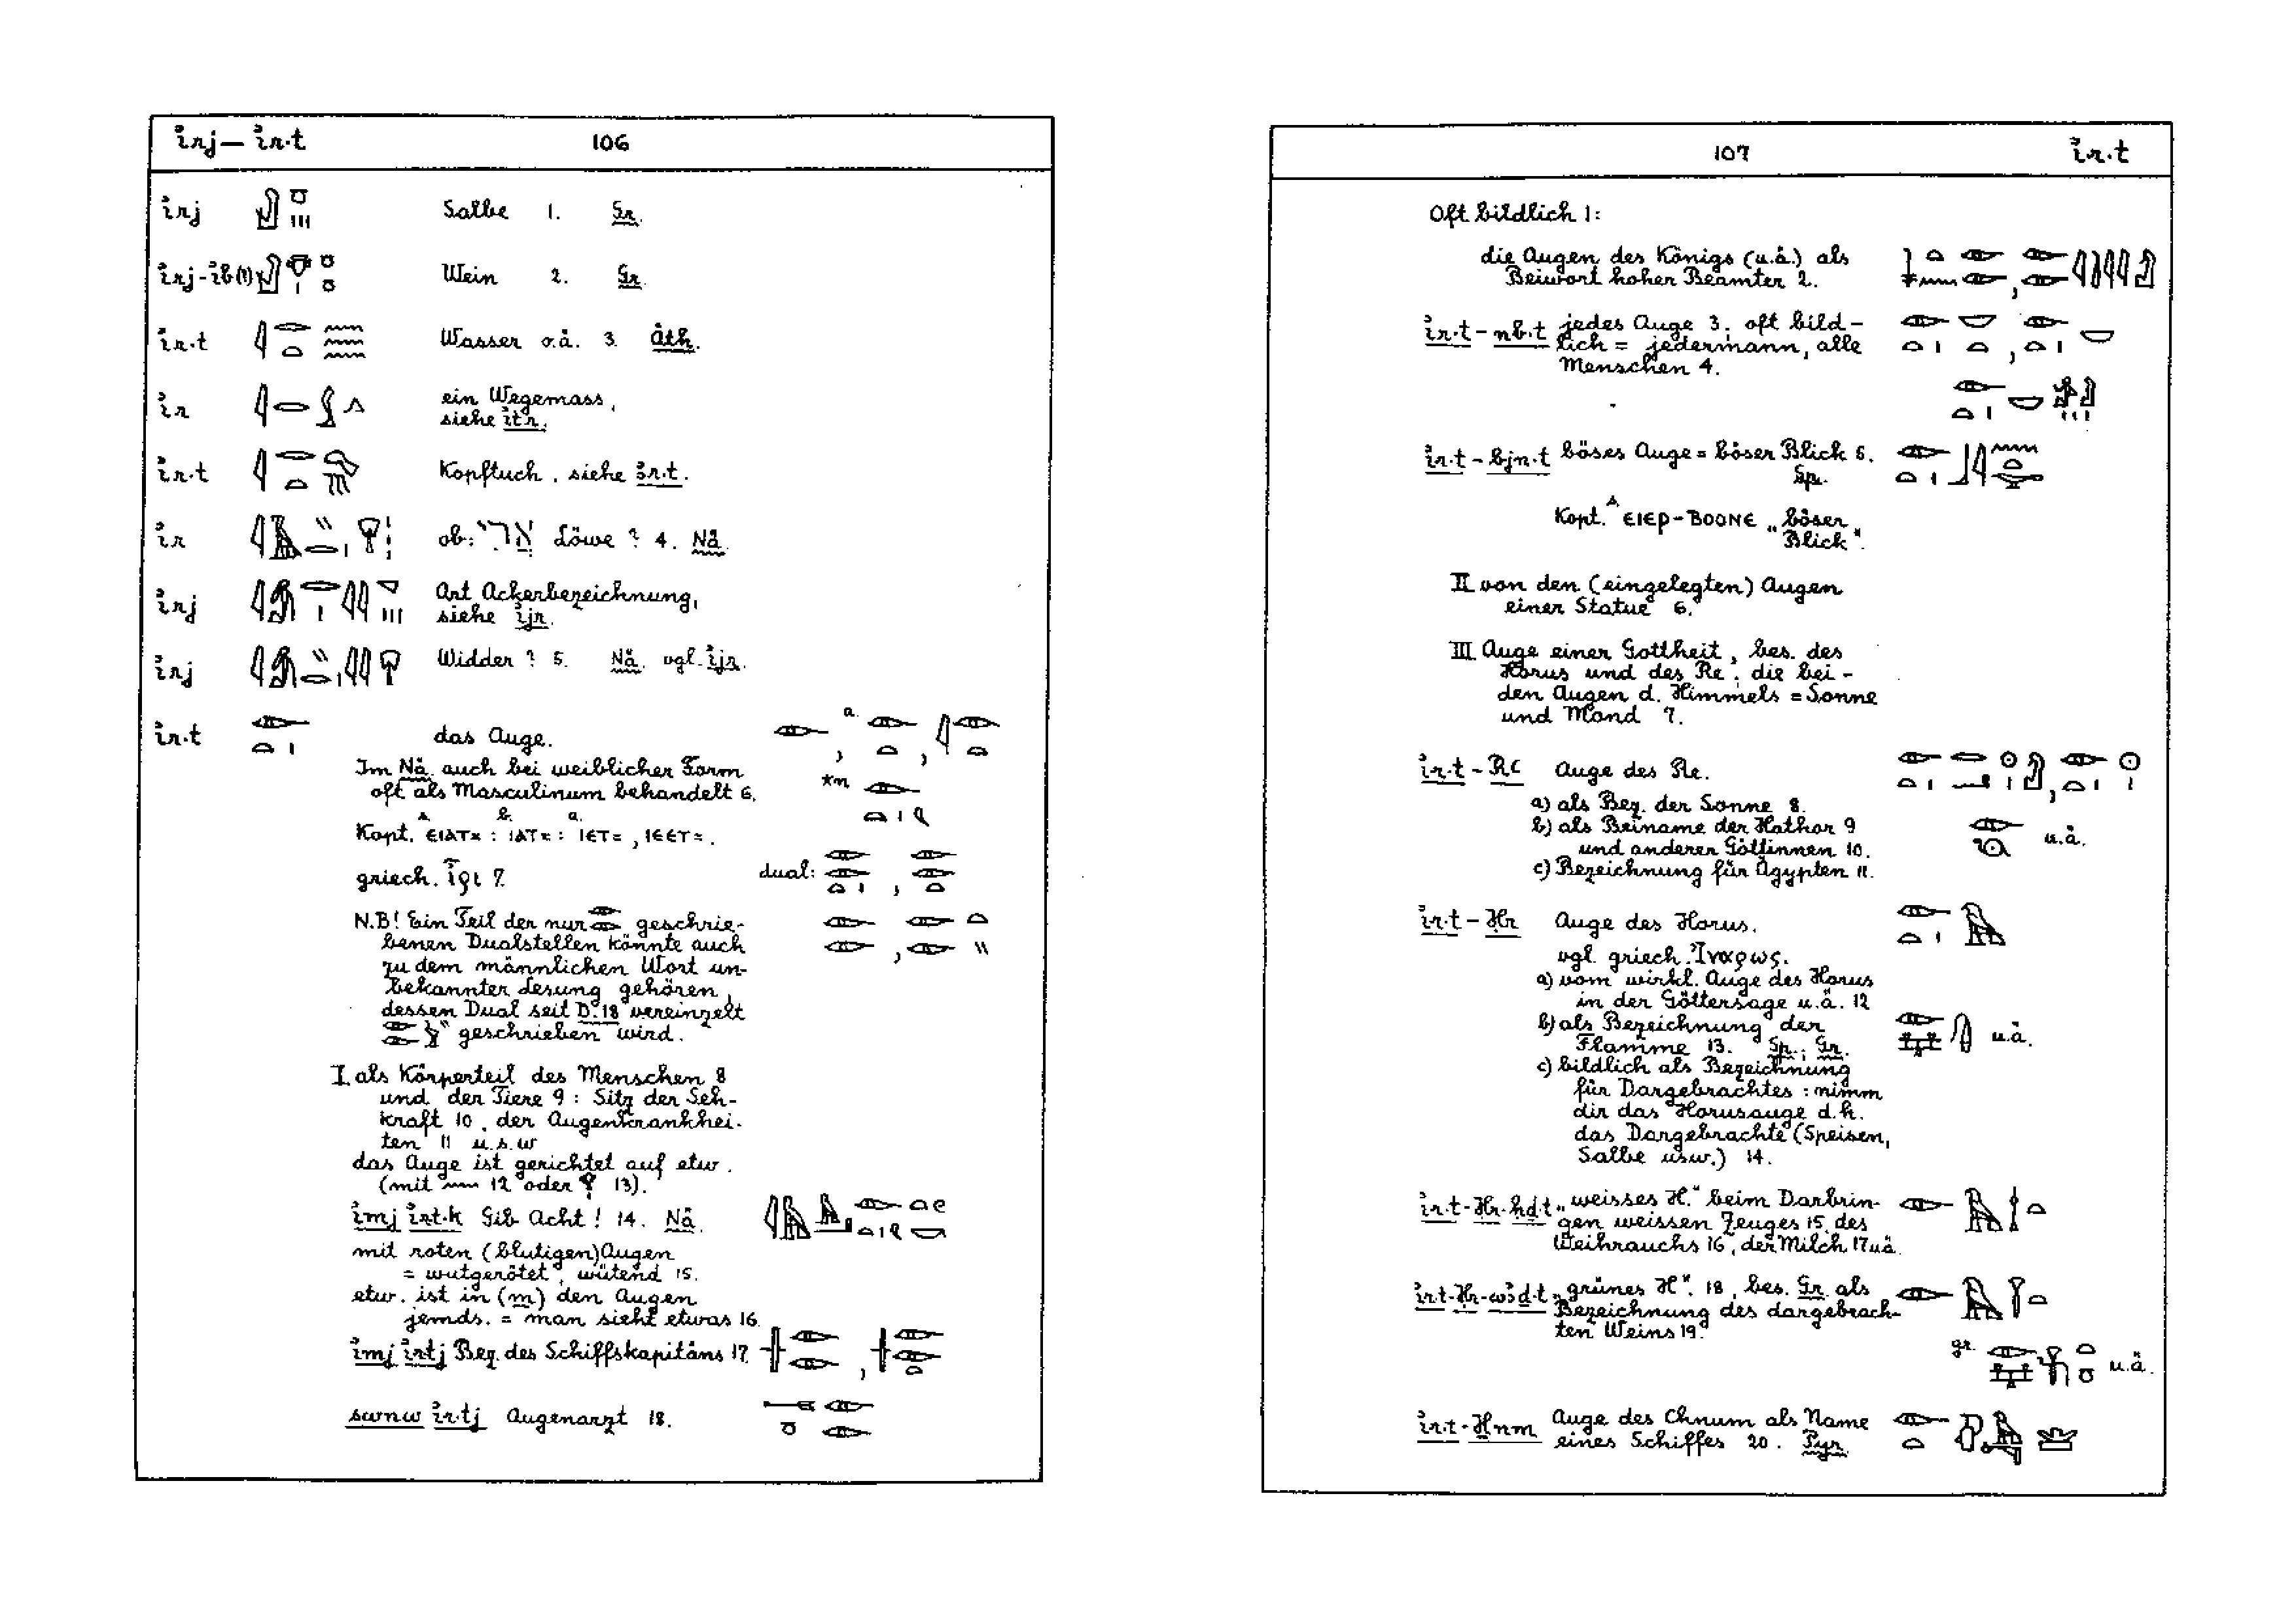 irj — ir·t 106
irj Salbe 1. Gr.
irj-ib(?) Wein 2. Gr.
ir·t Wasser o.ä. 3. Äth.
ir ein Wegemass,
siehe itr.
ir·t Kopftuch, siehe ꜣr·t.
ir ob: אֲרִי Löwe? 4. Nä.
irj Art Ackerbezeichnung,
siehe ijr.
irj Widder? 5. Nä. vgl. ijr.
ir·t das Auge.
Im Nä. auch bei weiblicher Form
oft als Masculinum behandelt 6.
Kopt. ⲉⲓⲁⲧ= : ⲓⲁⲧ= : ⲓⲉⲧ=, ⲓⲉⲉⲧ=.
griech. ἶρι 7.
dual:
N.B! Ein Teil der nur geschrie-
benen Dualstellen könnte auch
zu dem männlichen Wort un-
bekannter Lesung gehören,
dessen Dual seit D.18 vereinzelt
geschrieben wird.
I. als Körperteil des Menschen 8
und der Tiere 9: Sitz der Seh-
kraft 10, der Augenkrankhei-
ten 11 u.s.w
das Auge ist gerichtet auf etw.
(mit 12 oder 13).
imj irt·k Gib Acht! 14. Nä.
mit roten (blutigen) Augen
= wutgerötet, wütend 15.
etw. ist in (m) den Augen
jemds. = man sieht etwas 16.
imj irtj Bez. des Schiffskapitäns 17.
swnw ir·tj Augenarzt 18.
107 ir·t
Oft bildlich 1:
die Augen des Königs (u.ä.) als
Beiwort hoher Beamter 2.
ir·t-nb·t jedes Auge 3. oft bild-
lich = jedermann, alle
Menschen 4.
ir·t-bjn·t böses Auge = böser Blick 5.
Sp.
Kopt. ⲉⲓⲉⲣ-ⲃⲟⲟⲛⲉ „böser
Blick".
II von den (eingelegten) Augen
einer Statue 6.
III Auge einer Gottheit, bes. des
Horus und des Re; die bei-
den Augen d. Himmels = Sonne
und Mond 7.
ir·t-Rꜥ Auge des Re.
a) als Bez. der Sonne 8.
b) als Beiname der Hathor 9 u.ä.
und anderer Göttinnen 10.
c) Bezeichnung für Ägypten 11.
ir·t-Ḥr Auge des Horus.
vgl. griech. Ἰναρως.
a) vom wirkl. Auge des Horus
in der Göttersage u.ä. 12
b) als Bezeichnung der
Flamme 13. Sp.; Gr. u.ä.
c) bildlich als Bezeichnung
für Dargebrachtes: nimm
dir das Horusauge d.h.
das Dargebrachte (Speisen,
Salbe usw.) 14.
ir·t-Ḥr-ḥḏ·t „weisses H." beim Darbrin-
gen weissen Zeuges 15, des
Weihrauchs 16, der Milch 17 u.ä.
ir·t-Ḥr-wꜣḏ·t „grünes H". 18, bes. Gr. als
Bezeichnung des dargebrach-
ten Weins 19.
gr. u.ä.
ir·t-Ḫnm Auge des Chnum als Name
eines Schiffes 20. Pyr.